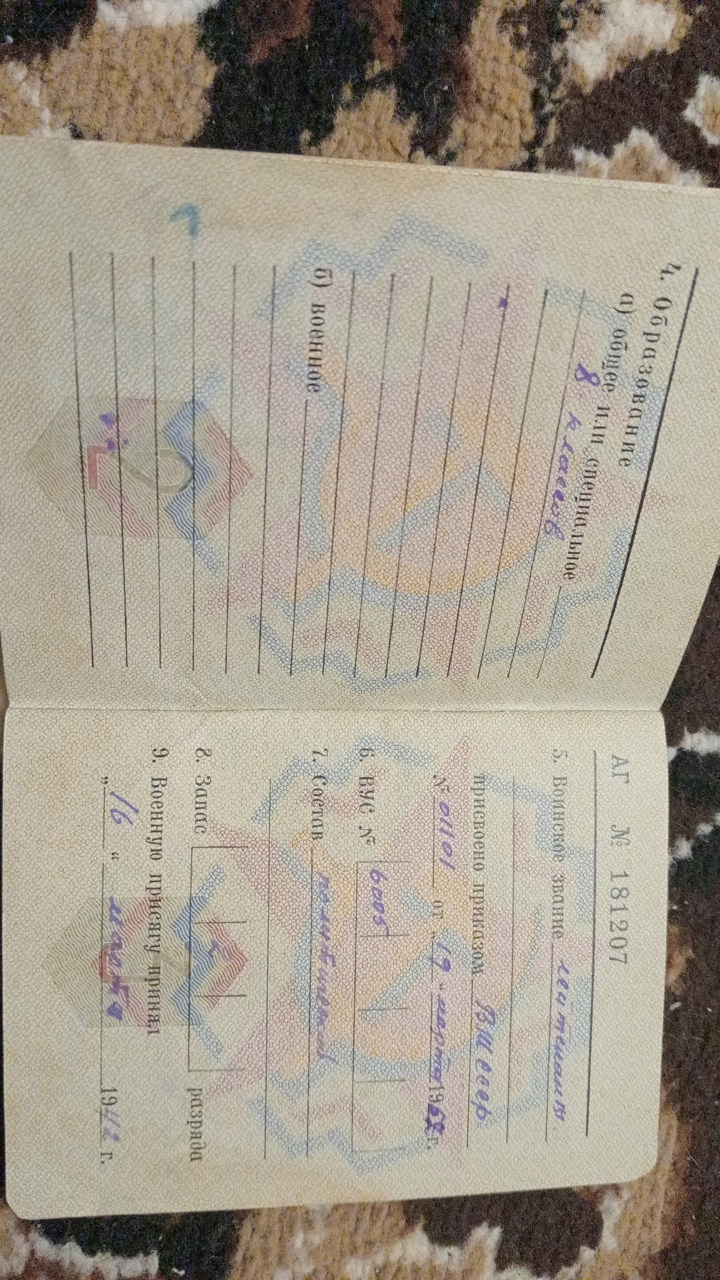 4. Образование
а) общее или специальное
8 классов
б) военное
АГ № 181207
5. Воинское звание лейтенант.
присвоено приказом
№ 01101 от „19" марта 19 г.
6. ВУС № 6005
7. Состав
8. Запас 2 разряда
9. Военную присягу принял
„16“ марта 1942 г.